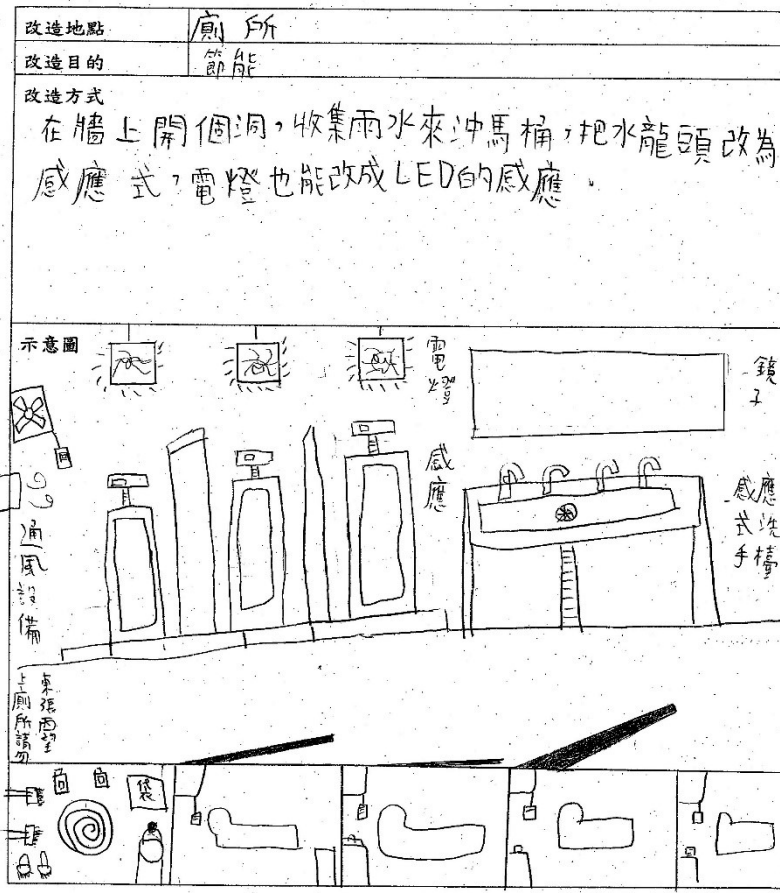 改造地點 廁所
改造目的 節能
改造方式
在牆上開個洞，收集雨水來沖馬桶，把水龍頭改為
感應式，電燈也能改成LED的感應。
示意圖
電燈
鏡子
感應
感應式洗手檯
通風設備
上廁所請勿
東張西望
袋